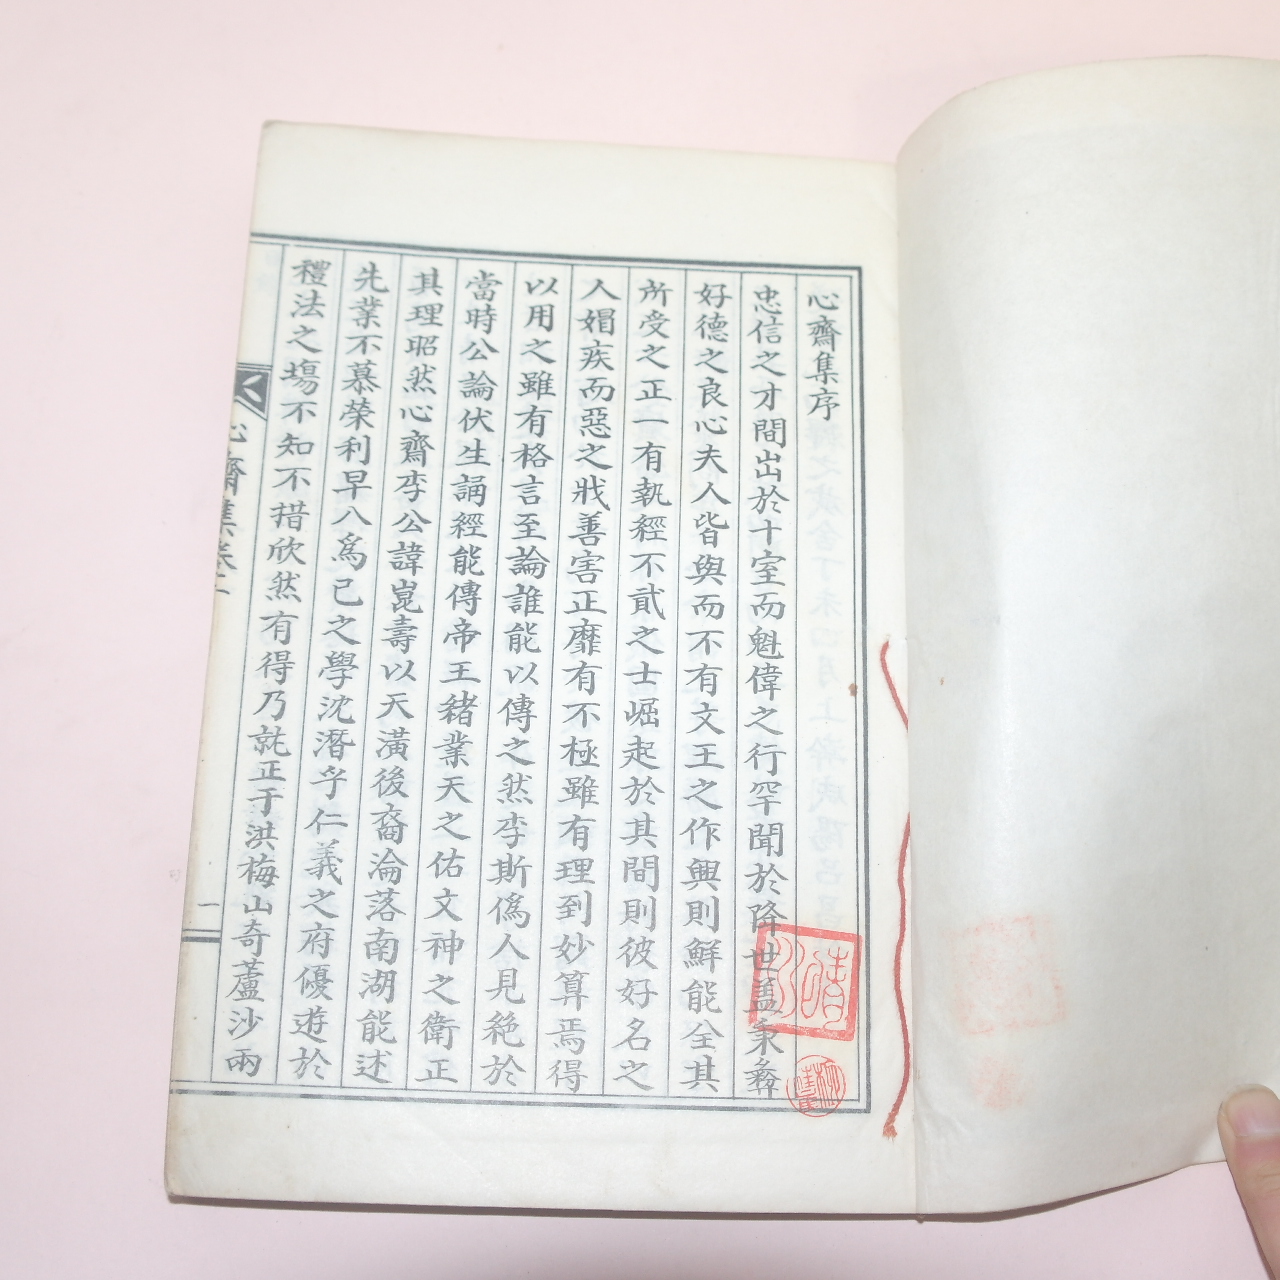 心齋集序
忠信之才間出於十室而魁偉之行罕聞於降世盖秉彝
好德之良心夫人皆與而不有文王之作興則鮮能全其
所受之正一有執經不貳之士崛起於其間則彼好名之
人娼疾而惡之戕善害正靡有不極雖有理到妙算焉得
以用之雖有格言至論誰能以傳之然李斯僞人見絶於
當時公論伏生誦經能傳帝王緒業天之佑文神之衛正
其理昭然心齋李公諱崑壽以天潢後裔淪落南湖能述
先業不慕榮利早八爲已之學沈潛乎仁義之府優遊於
禮法之塲不知不措欣然有得乃就正于洪梅山奇蘆沙兩
心齋集卷二
一